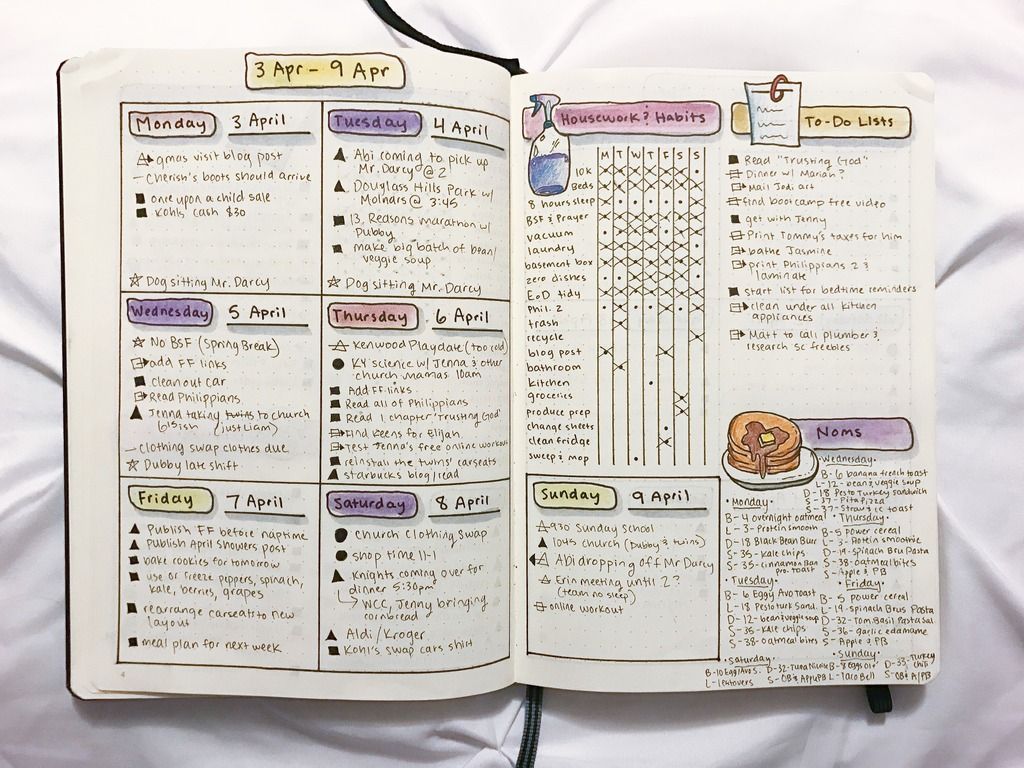 3 Apr - 9 Apr
Monday 3 April
gmas visit blog post
- Cherish's boots should arrive
once upon a child sale
Kohls' cash $30
Dog sitting Mr. Darcy
Tuesday 4 April
Abi coming to pick up
Mr. Darcy @ 2
Douglass Hills Park w/
Molnars @ 3:45
13 Reasons marathon w/
Dubby
make big batch of bean/
veggie soup
Dog sitting Mr. Darcy
Wednesday 5 April
No BSF (Spring Break)
add FF links
clean out car
Read Philippians
Jenna taking twins to church
6ish (just Liam)
- clothing swap clothes due
Dubby late shift
Thursday 6 April
Kenwood Playdate (too cold)
KY science w/ Jenna & other
church mamas 10am
Add FF links
Read all of Philippians
Read 1 chapter 'Trusting God'
find Keens for Elijah
Test Jenna's free online workout
reinstall the twins' carseats
starbucks blog/read
Friday 7 April
Publish FF before naptime
Publish April Showers post
bake cookies for tomorrow
use or freeze peppers, spinach,
kale, berries, grapes
rearrange carseats to new
layout
meal plan for next week
Saturday 8 April
church clothing swap
shop time 11-1
Knights coming over for
dinner 5:30pm
WCC, Jenny bringing
cornbread
Aldi/Kroger
Kohl's swap cars shirt
Housework & Habits
M T W T F S S
10K
Beds
8 hours sleep
BSF & Prayer
vacuum
laundry
basement box
zero dishes
EoD tidy
Phil. 2
trash
recycle
blog post
bathroom
kitchen
groceries
produce prep
change sheets
clean fridge
sweep & mop
To-Do Lists
Read "Trusting God"
Dinner w/ Mariah?
Mail Jodi art
find bootcamp free video
get with Jenny
Print Tommy's taxes for him
bathe Jasmine
print Philippians 2 &
laminate
start list for bedtime reminders
clean under all kitchen
appliances
Matt to call plumber &
research sc freebies
Sunday 9 April
930 Sunday School
1045 church (Dubby & twins)
Abi dropping off Mr Darcy
Erin meeting until 2?
(team no sleep)
online workout
Noms
· Monday ·
B - 4 overnight oatmeal
L - 3 - Protein smooth
D - 18 Black Bean Burr
S - 35 - Kale chips
S - 35 - Cinnamon Ban
pro. toast
· Tuesday ·
B - 6 Eggy Avo Toast
L - 18 Pesto turk Sand.
D - 12 - bean & veggie soup
S - 35 - Kale chips
S - 38 - oatmeal bites
· Wednesday ·
B - 6 banana french toast
L - 12 - bean & veggie soup
D - 18 Pesto Turkey Sandwich
S - 37 - Pita Pizza
S - 37 - Straw & ic toast
· Thursday ·
B - 5 power cereal
L - 3 - Protein smoothie
D - 19 - spinach Bru Pasta
S - 38 - oatmeal bites
S - Apple & PB
· Friday ·
B - 5 power cereal
L - 19 - spinach Brus Pasta
D - 32 - Tom. Basil Pasta Sal
S - 36 - garlic edamame
S - Apple & PB
· Saturday ·
B - 10 Egg/Avo S.
L - leftovers
D - 32 - Tuna
S - OB & App/PB
· Sunday ·
B - 8 Eggs
L - Taco Bell
D - 33 - Turkey
Chili
S - OB & A/PB
4